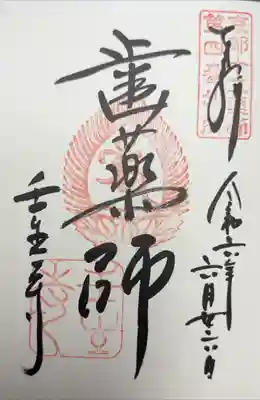 奉拝
令和六年六月廿六日
歯薬師
壬生寺